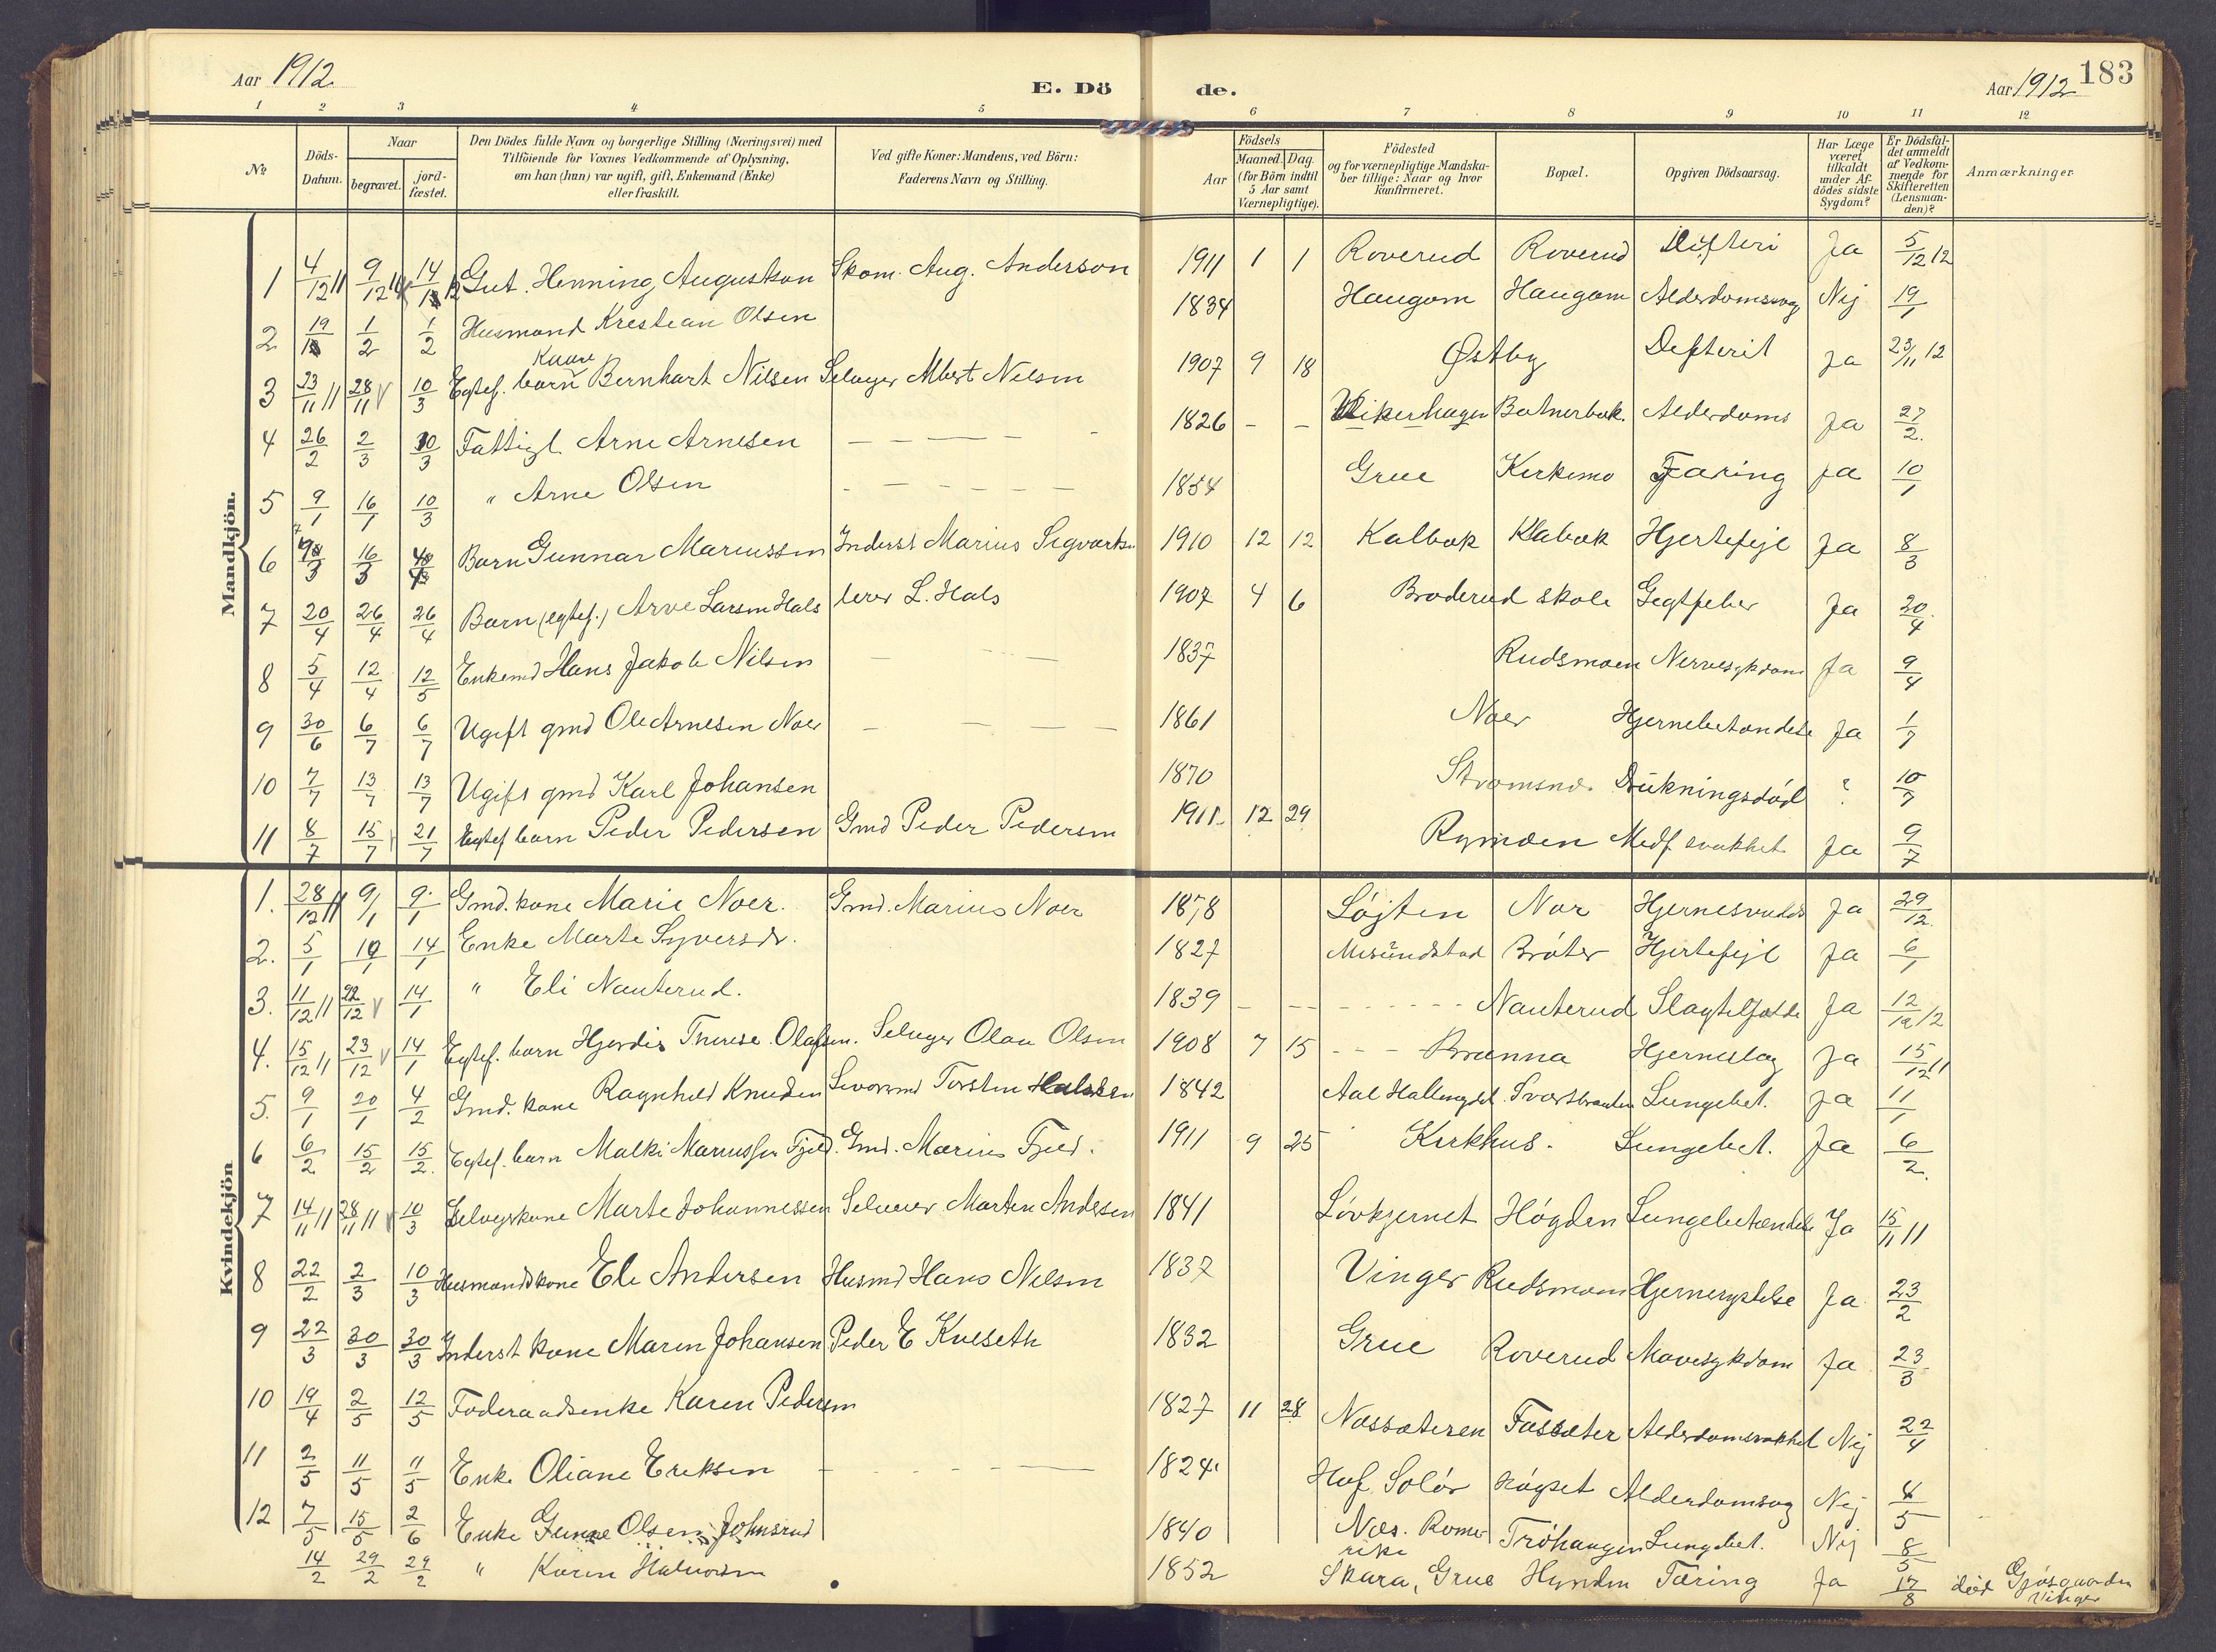 Aar 1912
E. Dö de.
Aar 1912 183
1 2 3 4 5 6 7 8 9 10 11 12
No
Döds-Datum.
Naar begravet. jordfæstet.
Den Dödes fulde Navn og borgerlige Stilling (Næringsvei) med
Tilföiende for Voxnes Vedkommende af Oplysning,
om han (hun) var ugift, gift, Enkemand (Enke)
eller fraskilt.
Ved gifte Koner: Mandens, ved Börn:
Faderens Navn og Stilling.
Födsels
Aar Maaned. Dag.
(for Börn indtil
5 Aar samt
Værnepligtige).
Födested
og for værnepligtige Mandska-
ber tillige: Naar og hvor
konfirmeret.
Bopæl.
Opgiven Dödsaarsag.
Har Læge
været
tilkaldt
under Af-
dödes sidste
Sygdom?
Er Dödsfal-
det anmeldt
af Vedkom-
mende for
Skifteretten
(Lensman-
den)?
Anmærkninger
Mandkjön.
1 4/12 11 9/12 11 14/1 12 Gut. Henning Augustson Skom. Aug. Anderson 1911 1 1 Roverud Roverud Difteri Ja 5/12 12
2 19/1 1/2 1/2 Husmand Krestian Olsen 1834 Haugom Haugom Alderdomssvag Nej 19/1
3 23/11 11 28/11 10/3 Egtef. barn Kaare Bernhart Nilsen Selveyer Albert Nilsen 1907 9 18 Østby Defterit Ja 23/11 12
4 26/2 2/3 10/3 Fattigl. Arne Arnesen 1826 - - Vikerhagen Batnerbak. Alderdoms Ja 27/2
5 9/1 16/1 10/3 " Arne Olsen 1854 Grue Kirkemo Tæring Ja 10/1
6 16/3 Barn Gunnar Mariussen Inderst Marius Sigvartsen 1910 12 12 Kalbak Klabak Hjertefejl Ja 8/3
7 20/4 26/4 26/4 Barn (egtef.) Arve Larsen Hals lærer L. Hals 1907 4 6 Braderud skole Gegtfeber Ja 20/4
8 5/4 12/4 12/5 Enkemd Hans Jakob Nilsen 1837 Rudsmoen Nervesykdom Ja 9/4
9 30/6 6/7 6/7 Ugift gmd Ole Arnesen Noer 1861 Noer Hjernebetændelse Ja 1/7
10 7/7 13/7 13/7 Ugift gmd Karl Johansen 1870 Stromsnd. Drukningsdød ? 10/7
11 8/7 15/7 21/7 Egtef barn Peder Pedersen Gmd Peder Pedersen 1911 12 29 Rymoen Medf. svakhet Ja 9/7
Kvindekjön
1. 28/12 11 9/1 9/1 Gmd. kone Marie Noer. Gmd. Marius Noer 1878 Løjten Nor Hjernesvulst Ja 29/12
2. 5/1 19/1 14/1 Enke Marte Syversdr. 1827 Mesündstad Bråten Hjertefejl Ja 6/1
3. 11/12 11 22/12 14/1 " Eli Nauterud. 1839 Nauterud Slagtilfælde Ja 12/12 12
4. 15/12 11 23/12 14/1 Egtef. barn Hjordis Therese Olafsen. Selveger Olau Olsen 1908 7 15 Brunna Hjerneslag Ja 15/12 11
5. 9/1 20/1 4/2 Gmd. kone Ragnhild Knudsen Torsten Halsteen 1842 Aal Hallingdal Svartbraaten Lungebet. Ja 11/1
6 6/2 15/2 15/2 Egtef. barn Malki Mariussen Fjeld. Gmd. Marius Fjeld. 1911 9 25 Kirkhus. Lungebet. Ja 6/2
7 14/11 11 28/11 11 10/3 Selveyerkone Marte Johannessen Selveier Marten Andersen 1841 Løvkjernet Høgden Lungebetændelse Ja 15/11 11
8 22/2 2/3 10/3 Husmandskone Eli Andersen Husmd Hans Nilsen 1837 Vinger Rudsmoen Hjernerystelse Ja 23/2
9 22/3 30/3 30/3 Inderst kone Maren Johansen Peder E Kveseth 1832 Grue Roverud Mavesykdom Ja 23/3
10 19/4 2/5 12/5 Føderaadsenke Karen Pedersen 1827 11 28 Næssæteren Fassæter Alderdomsvakhet Nej 22/4
11 2/5 11/5 11/5 Enke Oliane Eriksen 1824. Hof, Solør Høgset Alderdomsvag Nej 4/5
12 7/5 15/5 2/6 Enke Gunne Olsen Johnsrud 1840 Næs. Romerrike Trøhaugen Lungebet. Nej 8/5
14/2 29/2 29/2 " Karen Halvorsen 1852 Skara, Grue Hynden Tæring Ja 17/8 død Gjøsgaarden Vinger